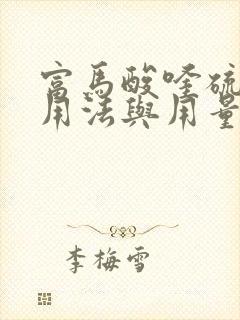 富馬酸喹硫
用法與用量
李梅雪